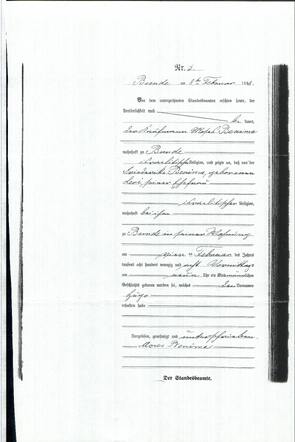 Nr. 2
Bunde am 8ten Februar 188
Vor dem unterzeichneten Standesbeamten erschien heute, der
Persönlichkeit nach
kannt,
der Kaufmann Moses Benima
wohnhaft zu Bunde
israelitischer Religion, und zeigte an, daß von der
Benima, geborenen
Levi, seiner Ehefrau
israelitischer Religion,
wohnhaft bei ihm
zu Bunde in seiner Wohnung
am Februar des Jahres
tausend acht hundert achtzig und acht Vormittags
um neun Uhr ein Kind männlichen
Geschlechts geboren worden sei, welches den Vornamen
Hugo
erhalten habe
Vorgelesen, genehmigt und unterschrieben
Moses Benima
Der Standesbeamte.